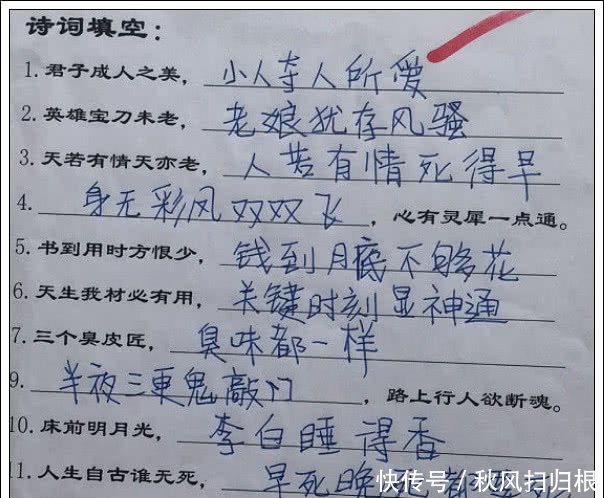 诗词填空：
1.君子成人之美，小人夺人所爱
2.英雄宝刀未老，老娘犹存风骚
3.天若有情天亦老，人若有情死得早
4.身无彩风双双飞，心有灵犀一点通。
5.书到用时方恨少，钱到月底不够花
6.天生我材必有用，关键时刻显神通
7.三个臭皮匠，臭味都一样
9.半夜三更鬼敲门，路上行人欲断魂。
10.床前明月光，李白睡得香
11.人生自古谁无死，早死晚
快传号／秋风扫归根